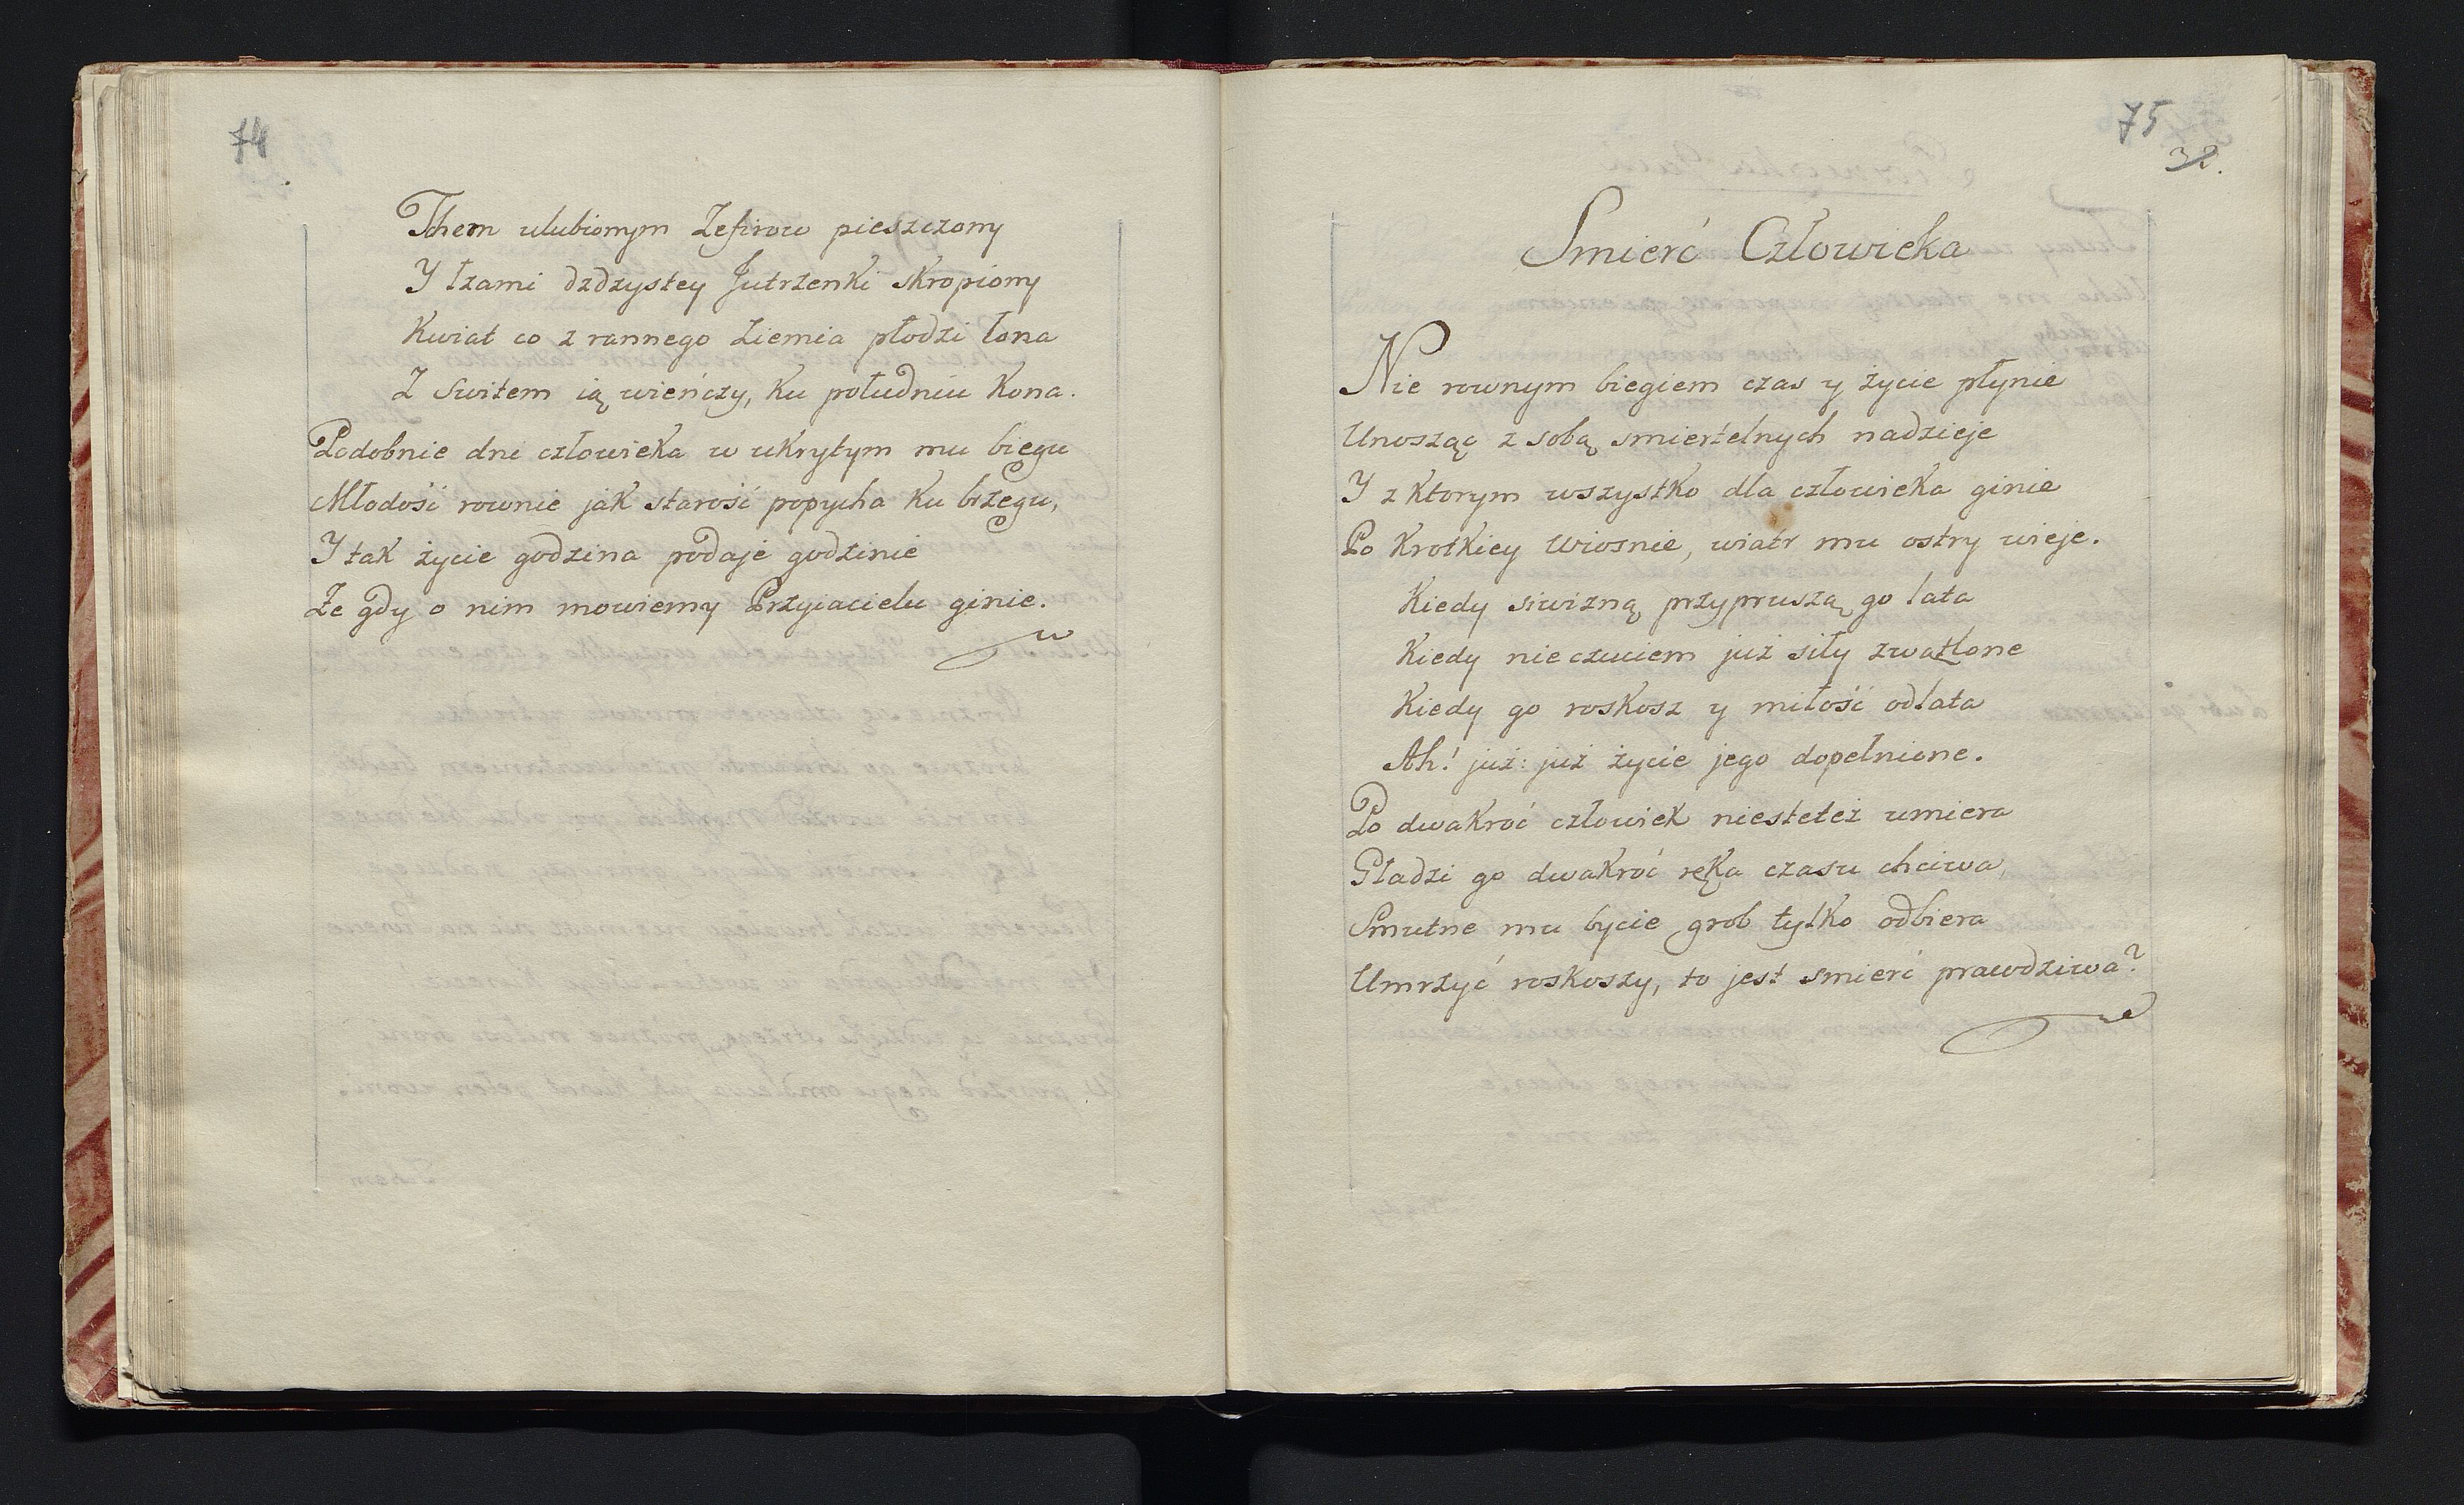 74
Tchem ulubionym Zefirow pieszczony
Y łzami dzdzystey Jutrzenki skropiony
Kwiat co z rannego Ziemia płodzi łona
Z switem ią wieńczy, ku południu kona.
Podobnie dni człowieka w ukrytym mu biegu
Młodość rownie jak starość popycha ku brzegu,
Y tak życie godzina podaje godzinie
Że gdy o nim mowiemy Przyiacielu ginie.
75
32.
Smierć Człowieka
Nie rownym biegiem czas y życie płynie
Unosząc z sobą smiertelnych nadzieje
Y z ktorym wszystko dla człowieka ginie
Po krotkiey Wiosnie, wiatr mu ostry wieje.
Kiedy siwizną przypruszą go lata
Kiedy nieczuciem już siły zwatlone
Kiedy go roskosz y miłość odlata
Ah! już: już życie jego dopełnione.
Po dwakroć człowiek niestetez umiera
Gładzi go dwakroć ręka czasu chciwa,
Smutne mu bycie grob tylko odbiera
Umrzyć roskoszy, to jest smierć prawdziwa?